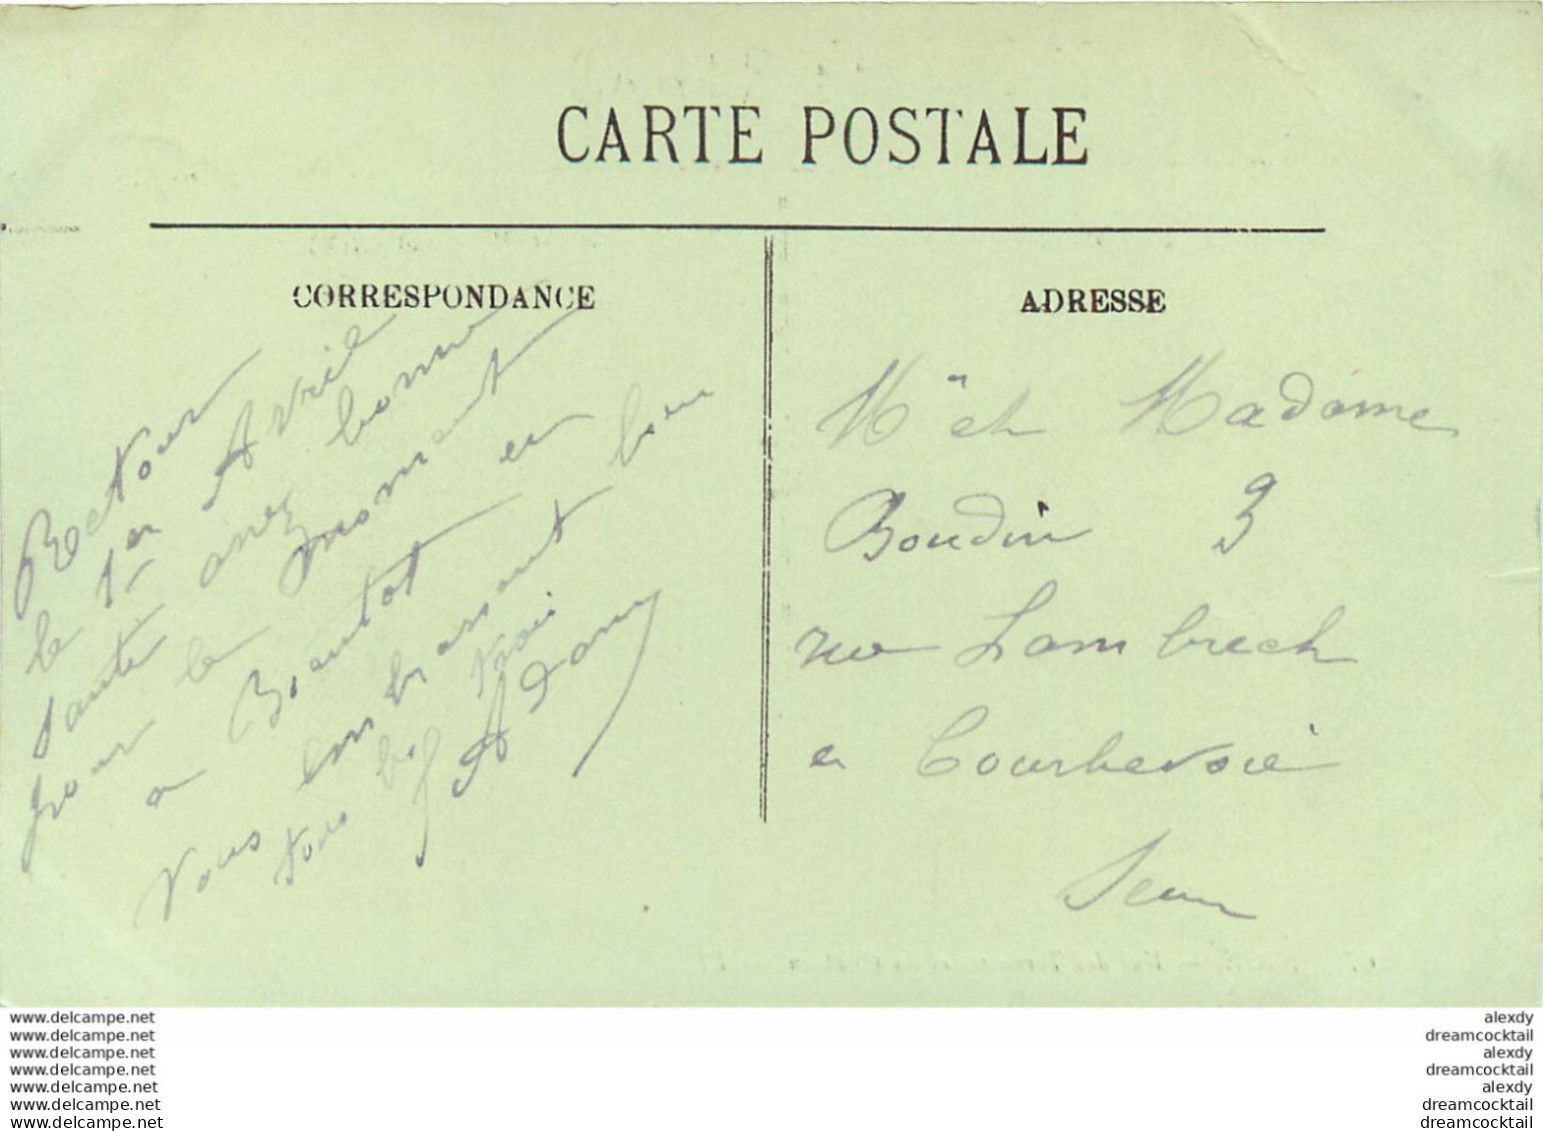 CARTE POSTALE
CORRESPONDANCE
Retour
le 1er Avril
santé assez bonne
pour le moment
a Bientot en
vous embrassant bien
tous
Adam
ADRESSE
Mr et Madame
Boudin 3
rue Lambrech
a Courbevoie
Seine
www.delcampe.net
www.delcampe.net
www.delcampe.net
www.delcampe.net
www.delcampe.net
www.delcampe.net
www.delcampe.net
alexdy
dreamcocktail
alexdy
dreamcocktail
alexdy
dreamcocktail
dreamcocktail